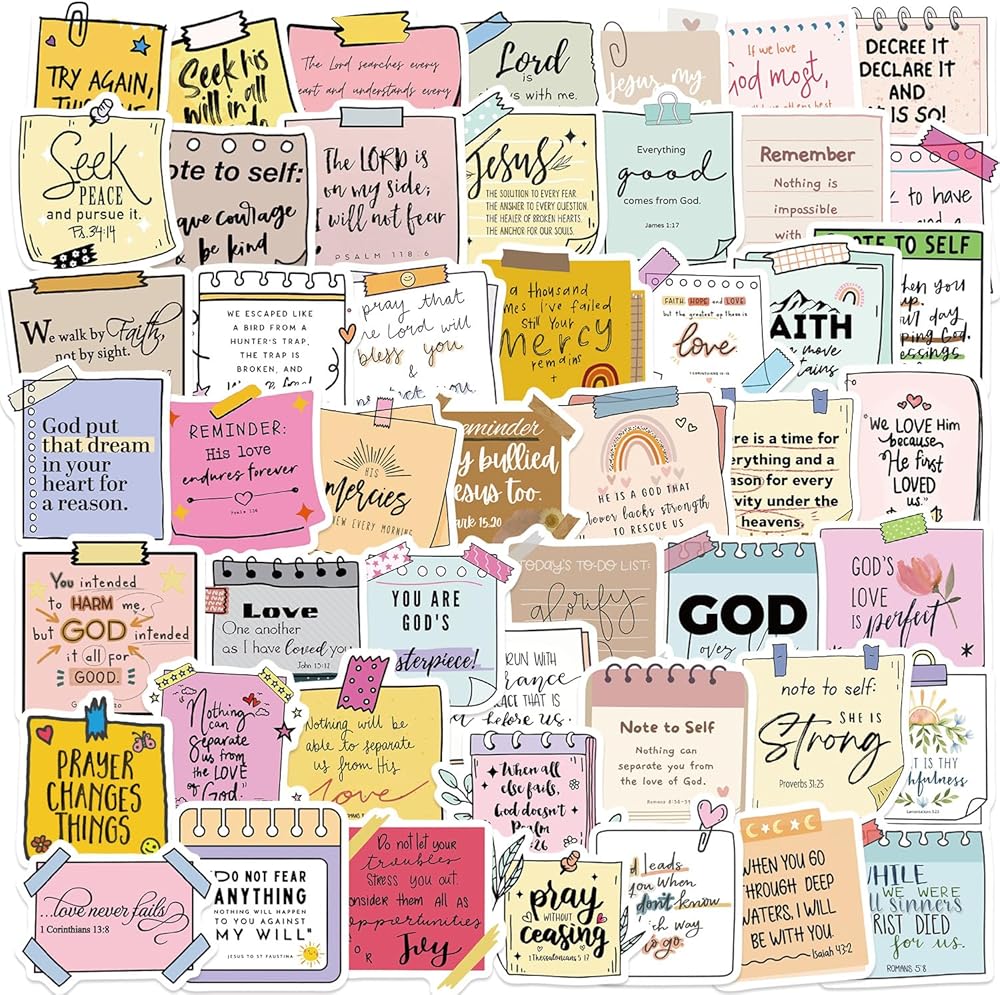 TRY AGAIN,
Seek his
will in all
The Lord searches every
heart and understands every
Lord
is
with me.
Jesus, my
If we love
God most,
DECREE IT
DECLARE IT
AND
IS SO!
Seek
PEACE
and pursue it.
Ps. 34:14
ote to self:
ave courage
& be kind
The LORD is
on my side;
I will not fear
PSALM 118:6
Jesus
THE SOLUTION TO EVERY FEAR.
THE ANSWER TO EVERY QUESTION.
THE HEALER OF BROKEN HEARTS.
THE ANCHOR FOR OUR SOULS.
Everything
good
comes from God.
James 1:17
Remember
Nothing is
impossible
with
to have
OTE TO SELF
hen you
up.
day
ping God,
essings
We walk by Faith,
not by sight.
WE ESCAPED LIKE
A BIRD FROM A
HUNTER'S TRAP,
THE TRAP IS
BROKEN, AND
pray that
he Lord will
bless you
&
a thousand
mes I've failed
Still Your
Mercy
remains
FAITH HOPE and LOVE
but the greatest of these is
love.
1 CORINTHIANS 13:13
AITH
move
tains
God put
that dream
in your
heart for
a reason.
REMINDER:
His love
endures forever
Psalm 136
HIS
mercies
EW EVERY MORNING
eminder
y bullied
esus too.
ark 15:20
HE IS A GOD THAT
never lacks strength
TO RESCUE US
re is a time for
erything and a
ason for every
vity under the
heavens.
"We LOVE Him
because
He first
LOVED
us."
You intended
to HARM me,
but GOD intended
it all for
GOOD.
Love
One another
as I have loved you
John 15:12
YOU ARE
GOD'S
sterpiece!
TODAY'S TO-DO LIST:
glorify
GOD
GOD'S
LOVE
IS perfect
Nothing
can
Separate
us from
the LOVE
of God.
Nothing will be
able to separate
us from His
love
RUN WITH
rance
ACE THAT IS
before us.
Note to Self
Nothing can
separate you from
the love of God.
note to self:
SHE IS
Strong
Proverbs 31:25
T IS THY
hfulness
Lamentations 3:23
PRAYER
CHANGES
THINGS
When all
else fails,
God doesn't
Psalm
:26
...love never fails
1 Corinthians 13:8
"DO NOT FEAR
ANYTHING
NOTHING WILL HAPPEN
TO YOU AGAINST
MY WILL"
JESUS TO ST FAUSTINA
Do not let your
troubles
stress you out.
onsider them all as
opportunities
OR
Joy
pray
WITHOUT
ceasing
1 Thessalonians 5:17
d Leads
you When
don't know
ch way
to go.
WHEN YOU GO
THROUGH DEEP
WATERS, I WILL
BE WITH YOU
Isaiah 43:2
HILE
WE WERE
LL sinners
RIST DIED
for us.
ROMANS 5:8